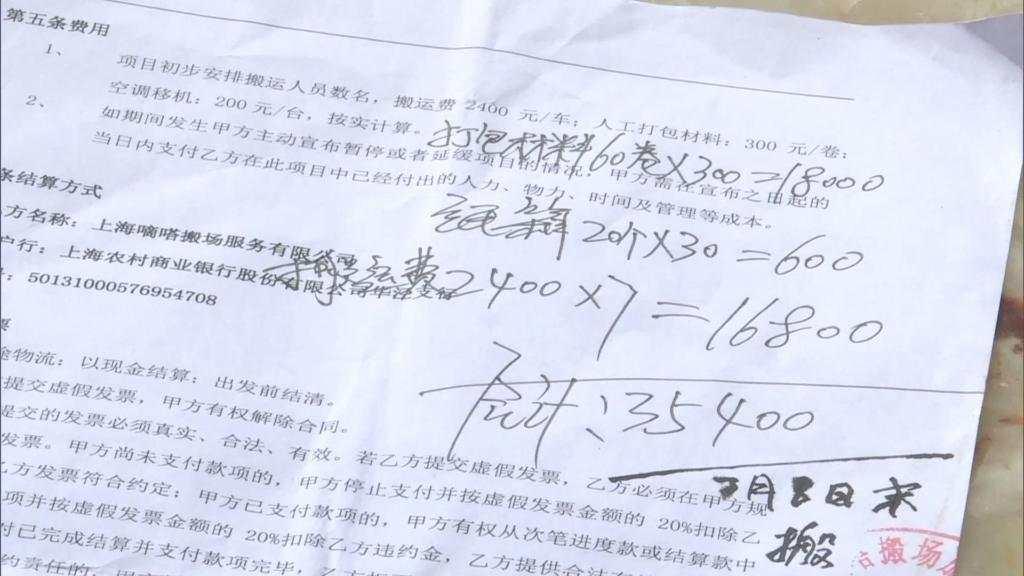 第五条费用
1、 项目初步安排搬运人员数名，搬运费 2400 元/车；人工打包材料：300 元/卷；
空调移机：200 元/台，按实计算。
打包材料60卷×300=18000
2、 如期间发生甲方主动宣布暂停或者延缓项目的情况，甲方需在宣布之日起的
当日内支付乙方在此项目中已经付出的人力、物力、时间及管理等成本。
20个×30=600
条结算方式
方名称：上海嘀嗒搬场服务有限公司
户行：上海农村商业银行股份有限公司华泾支行
：50131000576954708
搬运费2400×7=16800
票
途物流：以现金结算：出发前结清。
合计：35400
提交虚假发票，甲方有权解除合同。
提交的发票必须真实、合法、有效。若乙方提交虚假发票，乙方必须在甲方规
发票。甲方尚未支付款项的，甲方停止支付并按虚假发票金额的 20%扣除乙
乙方发票符合约定；甲方已支付款项的，甲方有权从次笔进度款或结算款中
项并按虚假发票金额的 20%扣除乙方违约金，乙方提供合法
付已完成结算并支付款项完毕，乙方
约责任的，
月8日来
搬
搬场